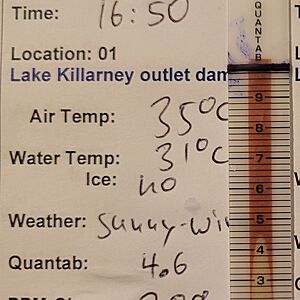 Time: 16:50
Location: 01
Lake Killarney outlet dam
Air Temp: 35°C
Water Temp: 31°C
Ice: no
Weather: Sunny-wi
Quantab: 4.6
QUANTAB
9
8
7
6
5
4
3